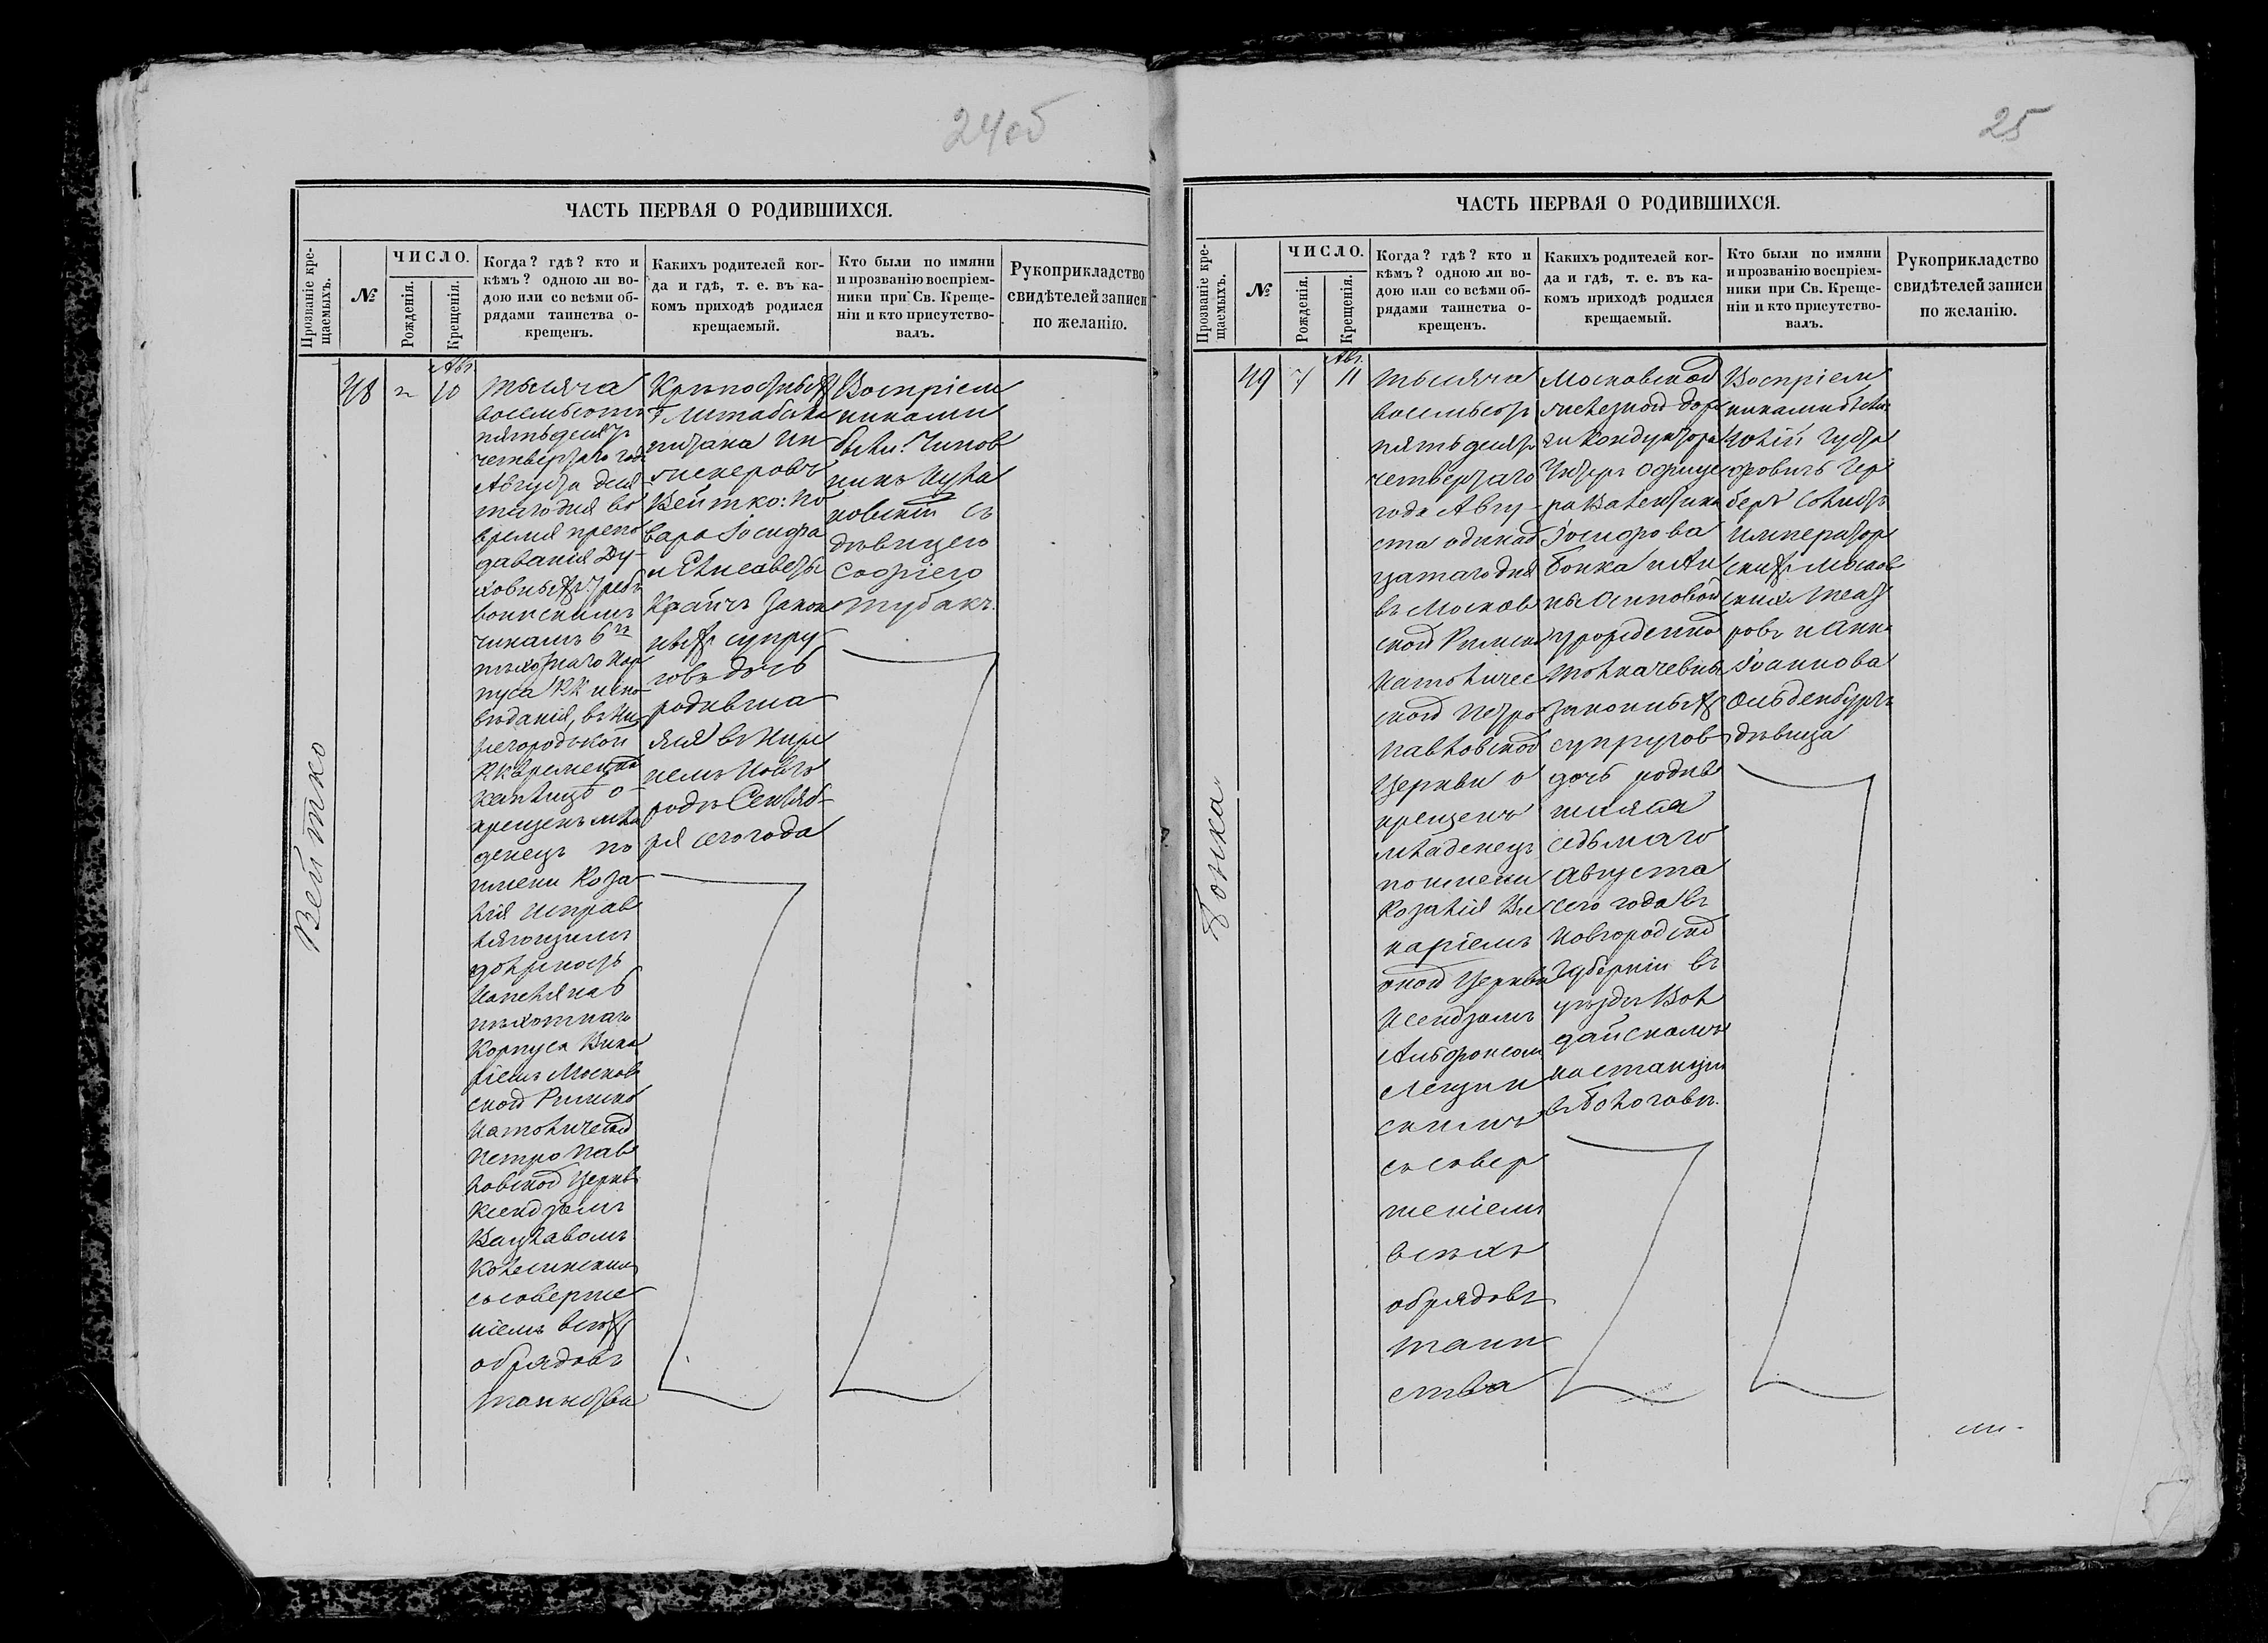 24об
ЧАСТЬ ПЕРВАЯ О РОДИВШИХСЯ.
Прозваніе кре-
щаемыхъ.
№
ЧИСЛО.
Рожденія.
Крещенія.
Когда? гдѣ? кто и
кѣмъ? одною ли во-
дою или со всѣми об-
рядами таинства о-
крещенъ.
Какихъ родителей ког-
да и гдѣ, т. е. въ ка-
комъ приходѣ родился
крещаемый.
Кто были по имяни
и прозванію воспріем-
ники при Св. Креще-
ніи и кто присутство-
валъ.
Рукоприкладство
свидѣтелей записи
по желанію.
Вейтко
48
2
Авг.
10
тысяча
восемьсотъ
пятьдесятъ
четвертаго года
Августа деся
таго дня во
время препо
даванія Ду-
ховныхъ требъ
воинскимъ
чинамъ 6го
пѣхотнаго Кор
пуса РК испо
вѣданія, въ Ни
жегородской
РК временной
Каплицѣ о-
крещенъ мла
денецъ по
имени Роза-
лія исправ
ляющимъ
должность
Капеляна 6
пѣхотнаго
Корпуса Вика
ріемъ Москов
ской Римско
Католической
Петро Пав
ловской Церкви
Ксендзомъ
Вацлавомъ
съ соверше
ніемъ всѣхъ
обрядовъ
таинства
Крѣпостныхъ
Г. Штабска
питана Ин
женеровъ
Вейтко: по
вара Іосифа
и Елисаветы
закон
ныхъ супру
говъ дочь
родивша
яся въ Ниж
немъ Новго
родѣ Сентяб-
ря сего года
Воспріем
никами
были: Чинов
никъ
съ
дѣвицею
Софіею
25
ЧАСТЬ ПЕРВАЯ О РОДИВШИХСЯ.
Прозваніе кре-
щаемыхъ.
№
ЧИСЛО.
Рожденія.
Крещенія.
Когда? гдѣ? кто и
кѣмъ? одною ли во-
дою или со всѣми об-
рядами таинства о-
крещенъ.
Какихъ родителей ког-
да и гдѣ, т. е. въ ка-
комъ приходѣ родился
крещаемый.
Кто были по имяни
и прозванію воспріем-
ники при Св. Креще-
ніи и кто присутство-
валъ.
Рукоприкладство
свидѣтелей записи
по желанію.
Бонка
49
7
Авг.
11
тысяча
восемьсотъ
пятьдесятъ
четвертаго
года Авгу-
ста одинад
цатаго дня
въ Москов
ской Римско
Католичес
ской Петро
Павловской
Церкви о
крещенъ
младенецъ
по имени
Розалія Ви
каріемъ
оной Церкви
Ксендзомъ
Альфонсомъ
Лещин
скимъ
съ совер
шеніемъ
всѣхъ
обрядовъ
таин
ства
Московской
желѣзной доро
ги Кондуктора
Унтеръ Офице
ра Валентина
Іосифова
Бонка и Ан
ны Осиповой
урожденной
законныхъ
супруговъ
дочь родив
шаяся
седьмаго
Августа
сего года въ
Новгородской
Губерніи въ
уѣздѣ Вол
дайскомъ
на станціи
въ Бологовѣ.
Воспріем
никами были:
Юлій Густа
фовичъ Гер
беръ Солистъ
Император
скихъ Москов
скихъ Теат
ровъ и Анна
Іоаннова
Ольденбургъ
дѣвица